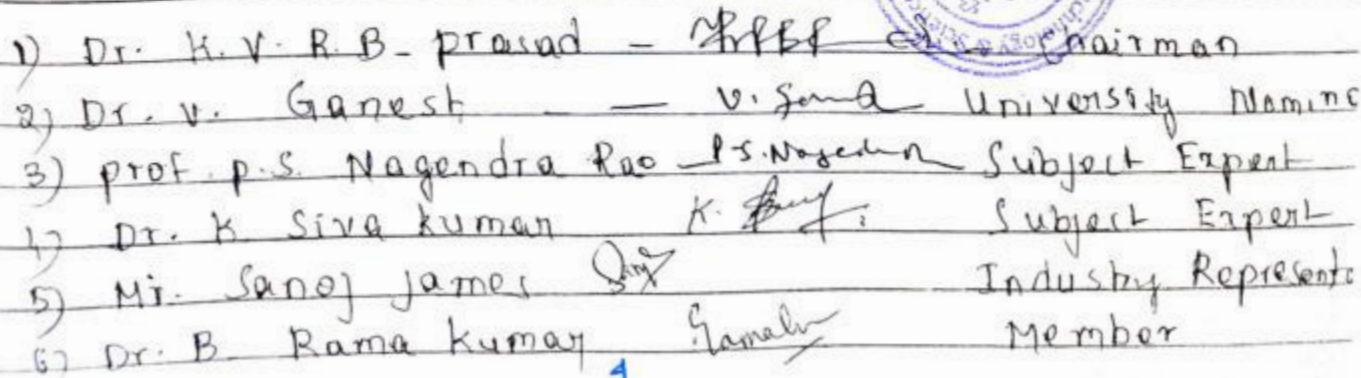 1) Dr. K. V. R. B- prasad - Chairman
2) Dr. V. Ganesh - V. University Nomine
3) prof. p.s. Nagendra Rao P.S. Nagendra Subject Expert
4) Dr. K Siva kumar K. Subject Expert
5) Mr. Sanoj James Industry Represente
6) Dr. B Rama kumar Member